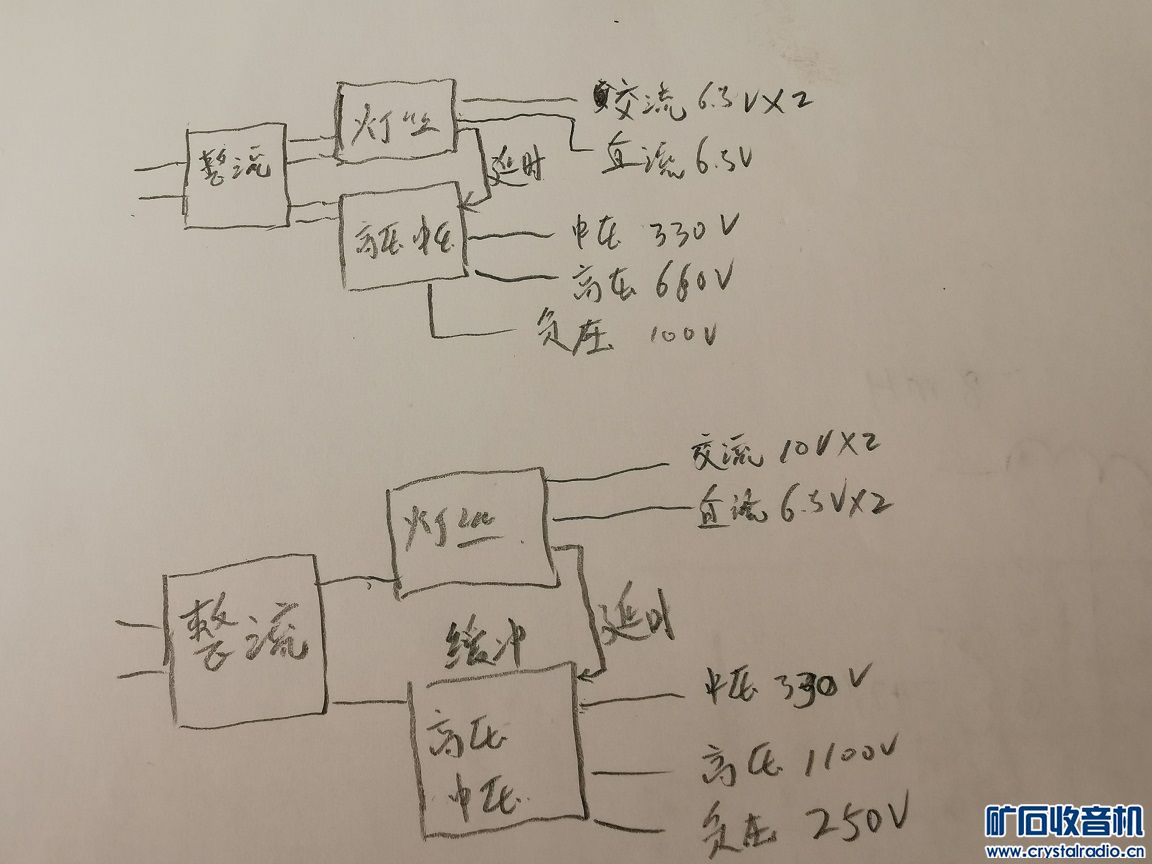 交流 6.3V×2
灯丝
整流
直流 6.3V
延时
中压 330V
高压 中压
高压 660V
负压 100V
交流 10V×2
灯丝
直流 6.3V×2
整流
缓冲
延时
中压 330V
高压
中压
高压 1100V
负压 250V
矿石收音机
www.crystalradio.cn